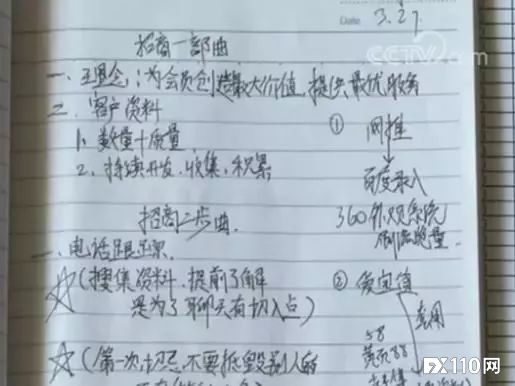 Date. 3.27.
CCTV.com
招商一部曲
一、理念:为会员创造最大价值,提供最优服务
二、客户资料
1、数量+质量
2、持续开发、收集、积累
① 网推
百度录入
360
刷流览量
招商二步曲
一、电话跟踪
☆(搜集资料,提前了解
是为了聊天有切入点)
② 实
套用
58
黄页88
☆(第一次切忌不要抵毁别人的
FX110网